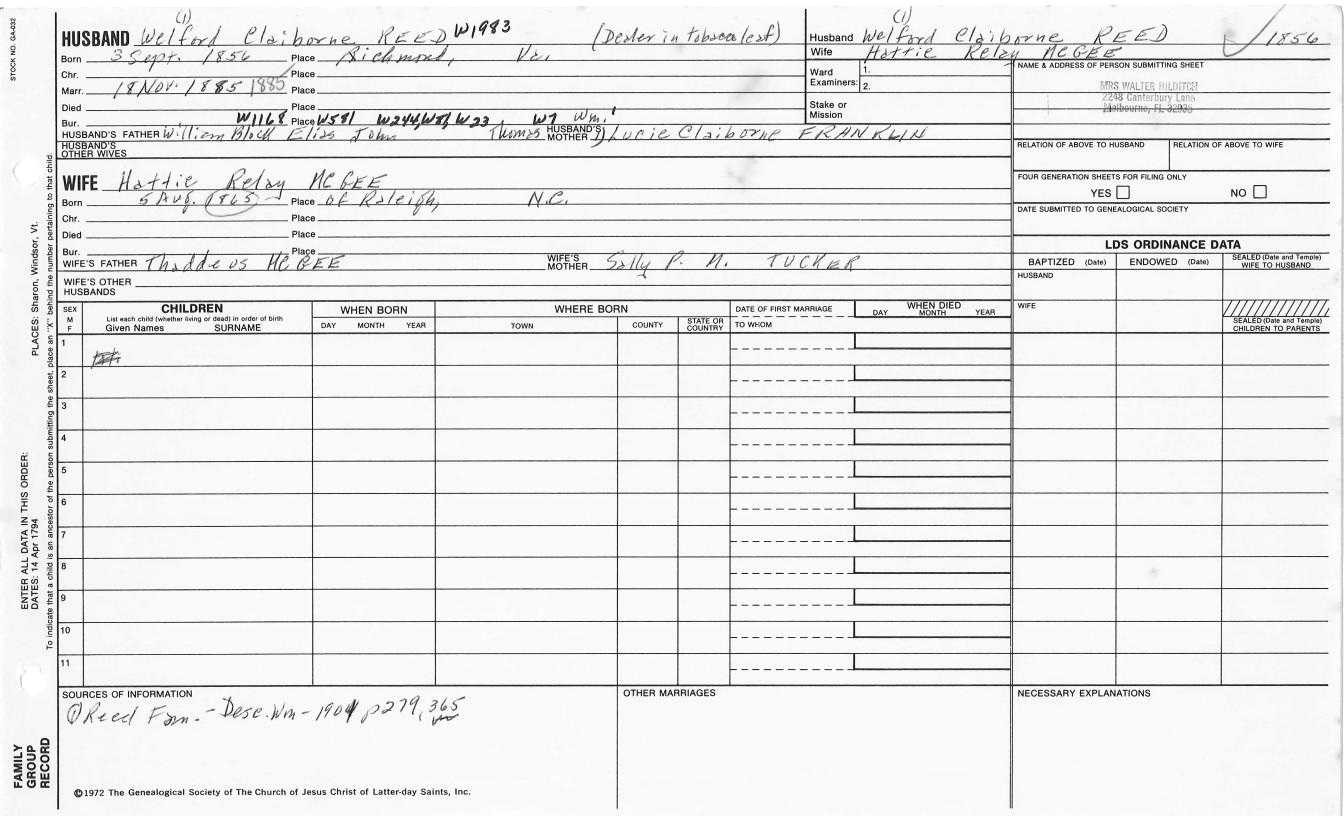 STOCK NO. GA-032
PLACES: Sharon, Windsor, Vt.
ENTER ALL DATA IN THIS ORDER:
DATES: 14 Apr 1794
To indicate that a child is an ancestor of the person submitting the sheet, place an "X" behind the number pertaining to that child.
FAMILY
GROUP
RECORD
(1)
HUSBAND Welford Claiborne REED W1983 (Dealer in tobacco leaf)
Born 3 Sept. 1856 Place Richmond, Va.
Chr. Place
Marr. 18 Nov. 1885 1885 Place
Died Place
Bur. W1168 Place W581 W244, W81, W23 W7 Wm.1
HUSBAND'S FATHER William Block Elias John Thomas HUSBAND'S MOTHER Lucie Claiborne FRANKLIN
HUSBAND'S
OTHER WIVES
WIFE Hattie Relay McGEE
Born 5 Aug. 1865 Place of Raleigh, N.C.
Chr. Place
Died Place
Bur. Place
WIFE'S FATHER Thaddeus McGEE WIFE'S MOTHER Sally P. M. TUCKER
WIFE'S OTHER
HUSBANDS
(1)
Husband Welford Claiborne REED 1856
Wife Hattie Relay McGEE
Ward
Examiners:
1.
2.
Stake or
Mission
NAME & ADDRESS OF PERSON SUBMITTING SHEET
MRS WALTER HILDITCH
2248 Canterbury Lane
Melbourne, FL 32935
RELATION OF ABOVE TO HUSBAND RELATION OF ABOVE TO WIFE
FOUR GENERATION SHEETS FOR FILING ONLY
YES NO
DATE SUBMITTED TO GENEALOGICAL SOCIETY
LDS ORDINANCE DATA
BAPTIZED (Date) ENDOWED (Date) SEALED (Date and Temple)
WIFE TO HUSBAND
HUSBAND
WIFE
SEALED (Date and Temple)
CHILDREN TO PARENTS
SEX
M
F
CHILDREN
List each child (whether living or dead) in order of birth
Given Names SURNAME
WHEN BORN
DAY MONTH YEAR
WHERE BORN
TOWN COUNTY STATE OR
COUNTRY
DATE OF FIRST MARRIAGE
TO WHOM
WHEN DIED
DAY MONTH YEAR
1
2
3
4
5
6
7
8
9
10
11
SOURCES OF INFORMATION
① Reed Fam. - Desc. Wm - 1904 p279, 365
OTHER MARRIAGES
NECESSARY EXPLANATIONS
©1972 The Genealogical Society of The Church of Jesus Christ of Latter-day Saints, Inc.